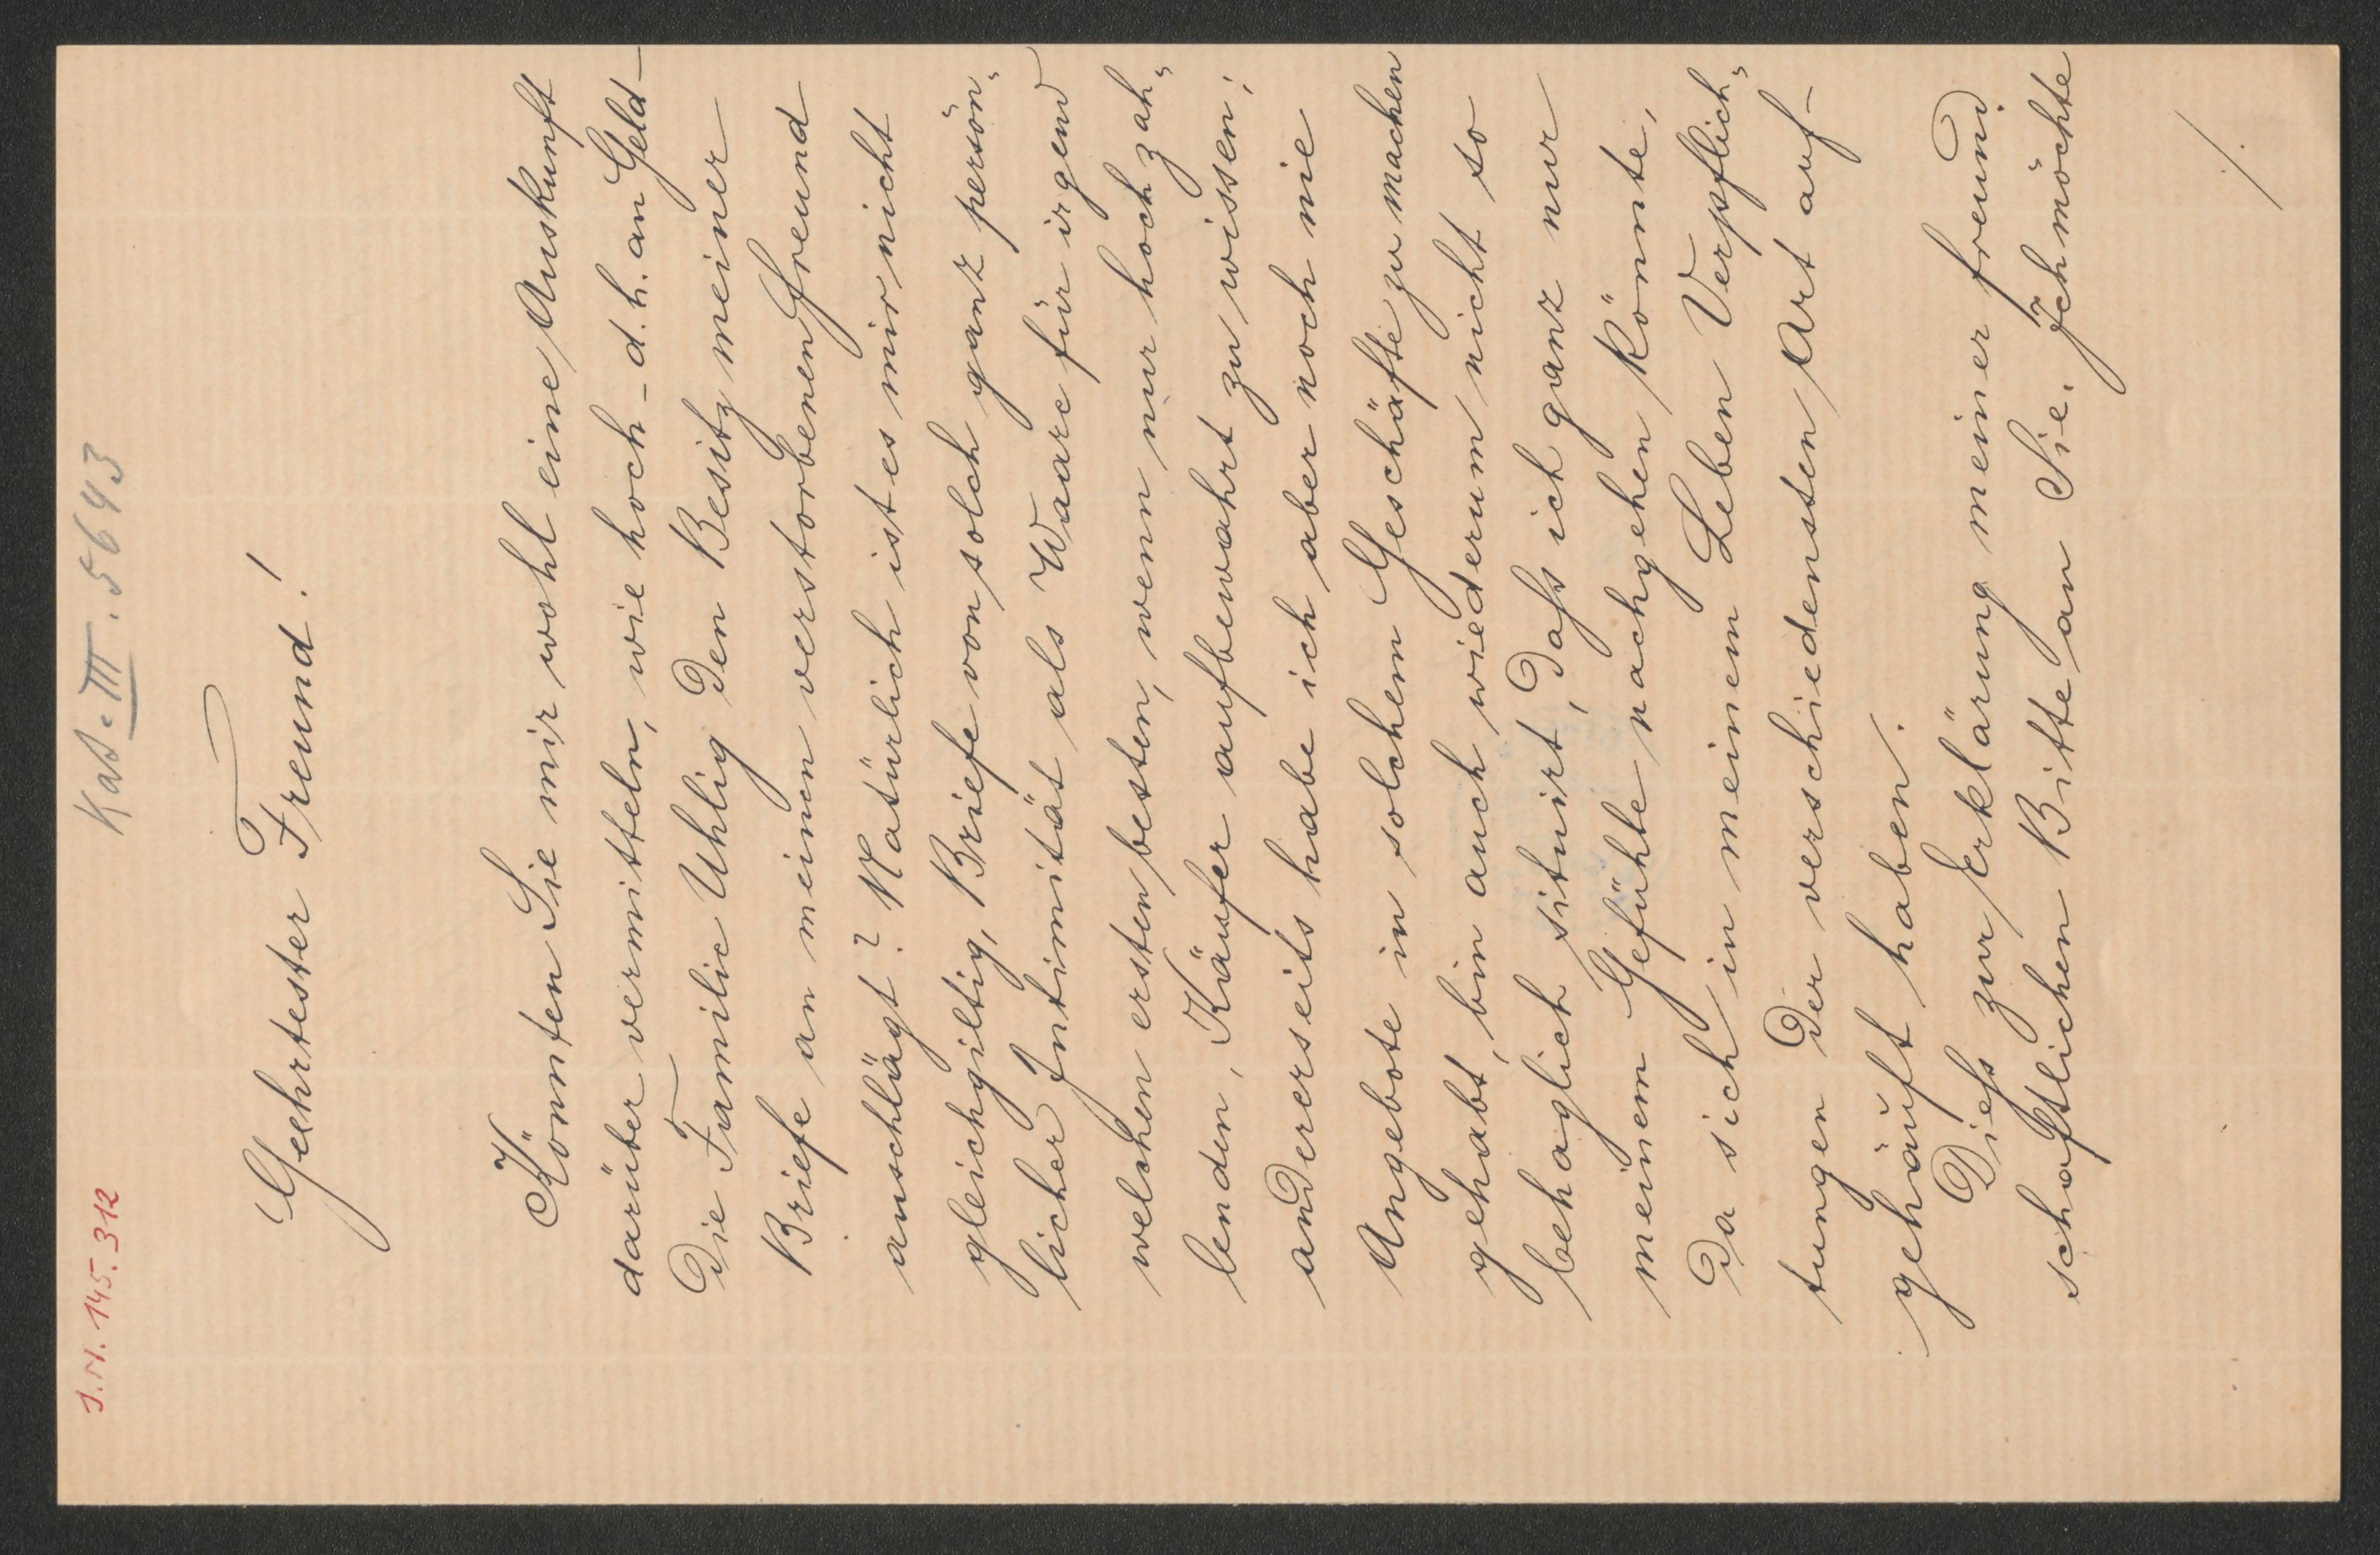 J.N. 145.312
Kat. III. 5643
Geehrtester Freund!
Könnten Sie mir wohl eine Auskunft
darüber vermitteln, wie hoch – d. h. an Geld –
die Familie Uhlig den Besitz meiner
Briefe an meinen verstorbenen Freund
anschlägt? Natürlich ist es mir nicht
gleichgiltig, Briefe von solch ganz persön„
licher Intimität als Waare für irgend
welchen ersten besten, wenn nur hoch zah„
lenden, Käufer aufbewahrt zu wissen;
andererseits habe ich aber noch nie
Angebote in solchen Geschäfte zu machen
gehabt, bin auch wiederum nicht so
behaglich situirt, dass ich ganz nur
meinem Gefühle nachgehen könnte,
da sich in meinem Leben Verpflich„
tungen der verschiedensten Art auf-
gehäuft haben.
Diess zur Erklärung meiner freund
schaftlichen Bitte an Sie. Ich möchte
/.